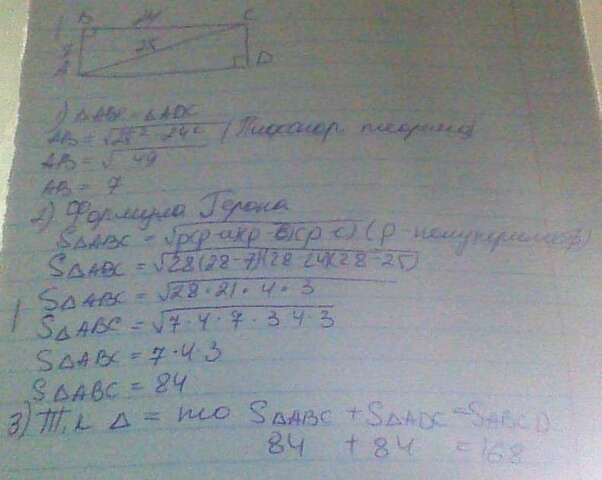 B 24 C
25
A D
1) ΔABC = ΔADC
AB = √25² - 24² (Пифагор теорема)
AB = √49
AB = 7
2) Формула Герона
SΔABC = √p(p-a)(p-b)(p-c) (p-полупериметр)
SΔABC = √28(28-7)(28-24)(28-25)
SΔABC = √28·21·4·3
SΔABC = √7·4·7·3·4·3
SΔABC = 7·4·3
SΔABC = 84
3) Т.к Δ = то SΔABC + SΔADC = SABCD
84 + 84 = 168